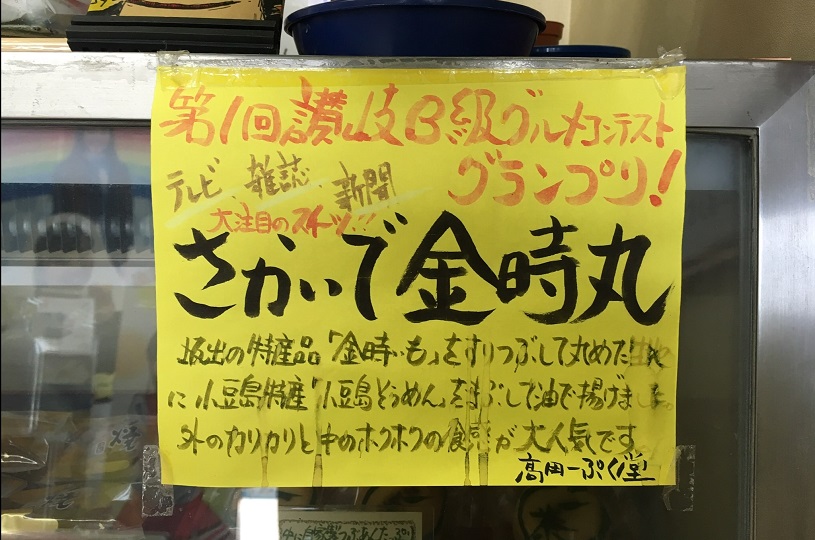 第1回讃岐B級グルメコンテスト
グランプリ!
テレビ 雑誌 新聞
大注目のスイーツ!!!
さかいで金時丸
坂出の特産品「金時いも」をすりつぶして丸めた
に小豆島特産「小豆島そうめん」をまぶして油で揚げました。
外のカリカリと中のホクホクの食感が大人気です
高田一ぷく堂